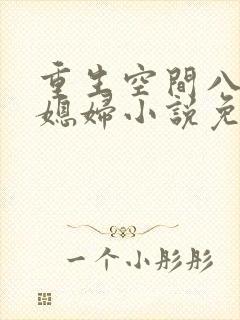 重生空間八
媳婦小說免
一个小彤彤